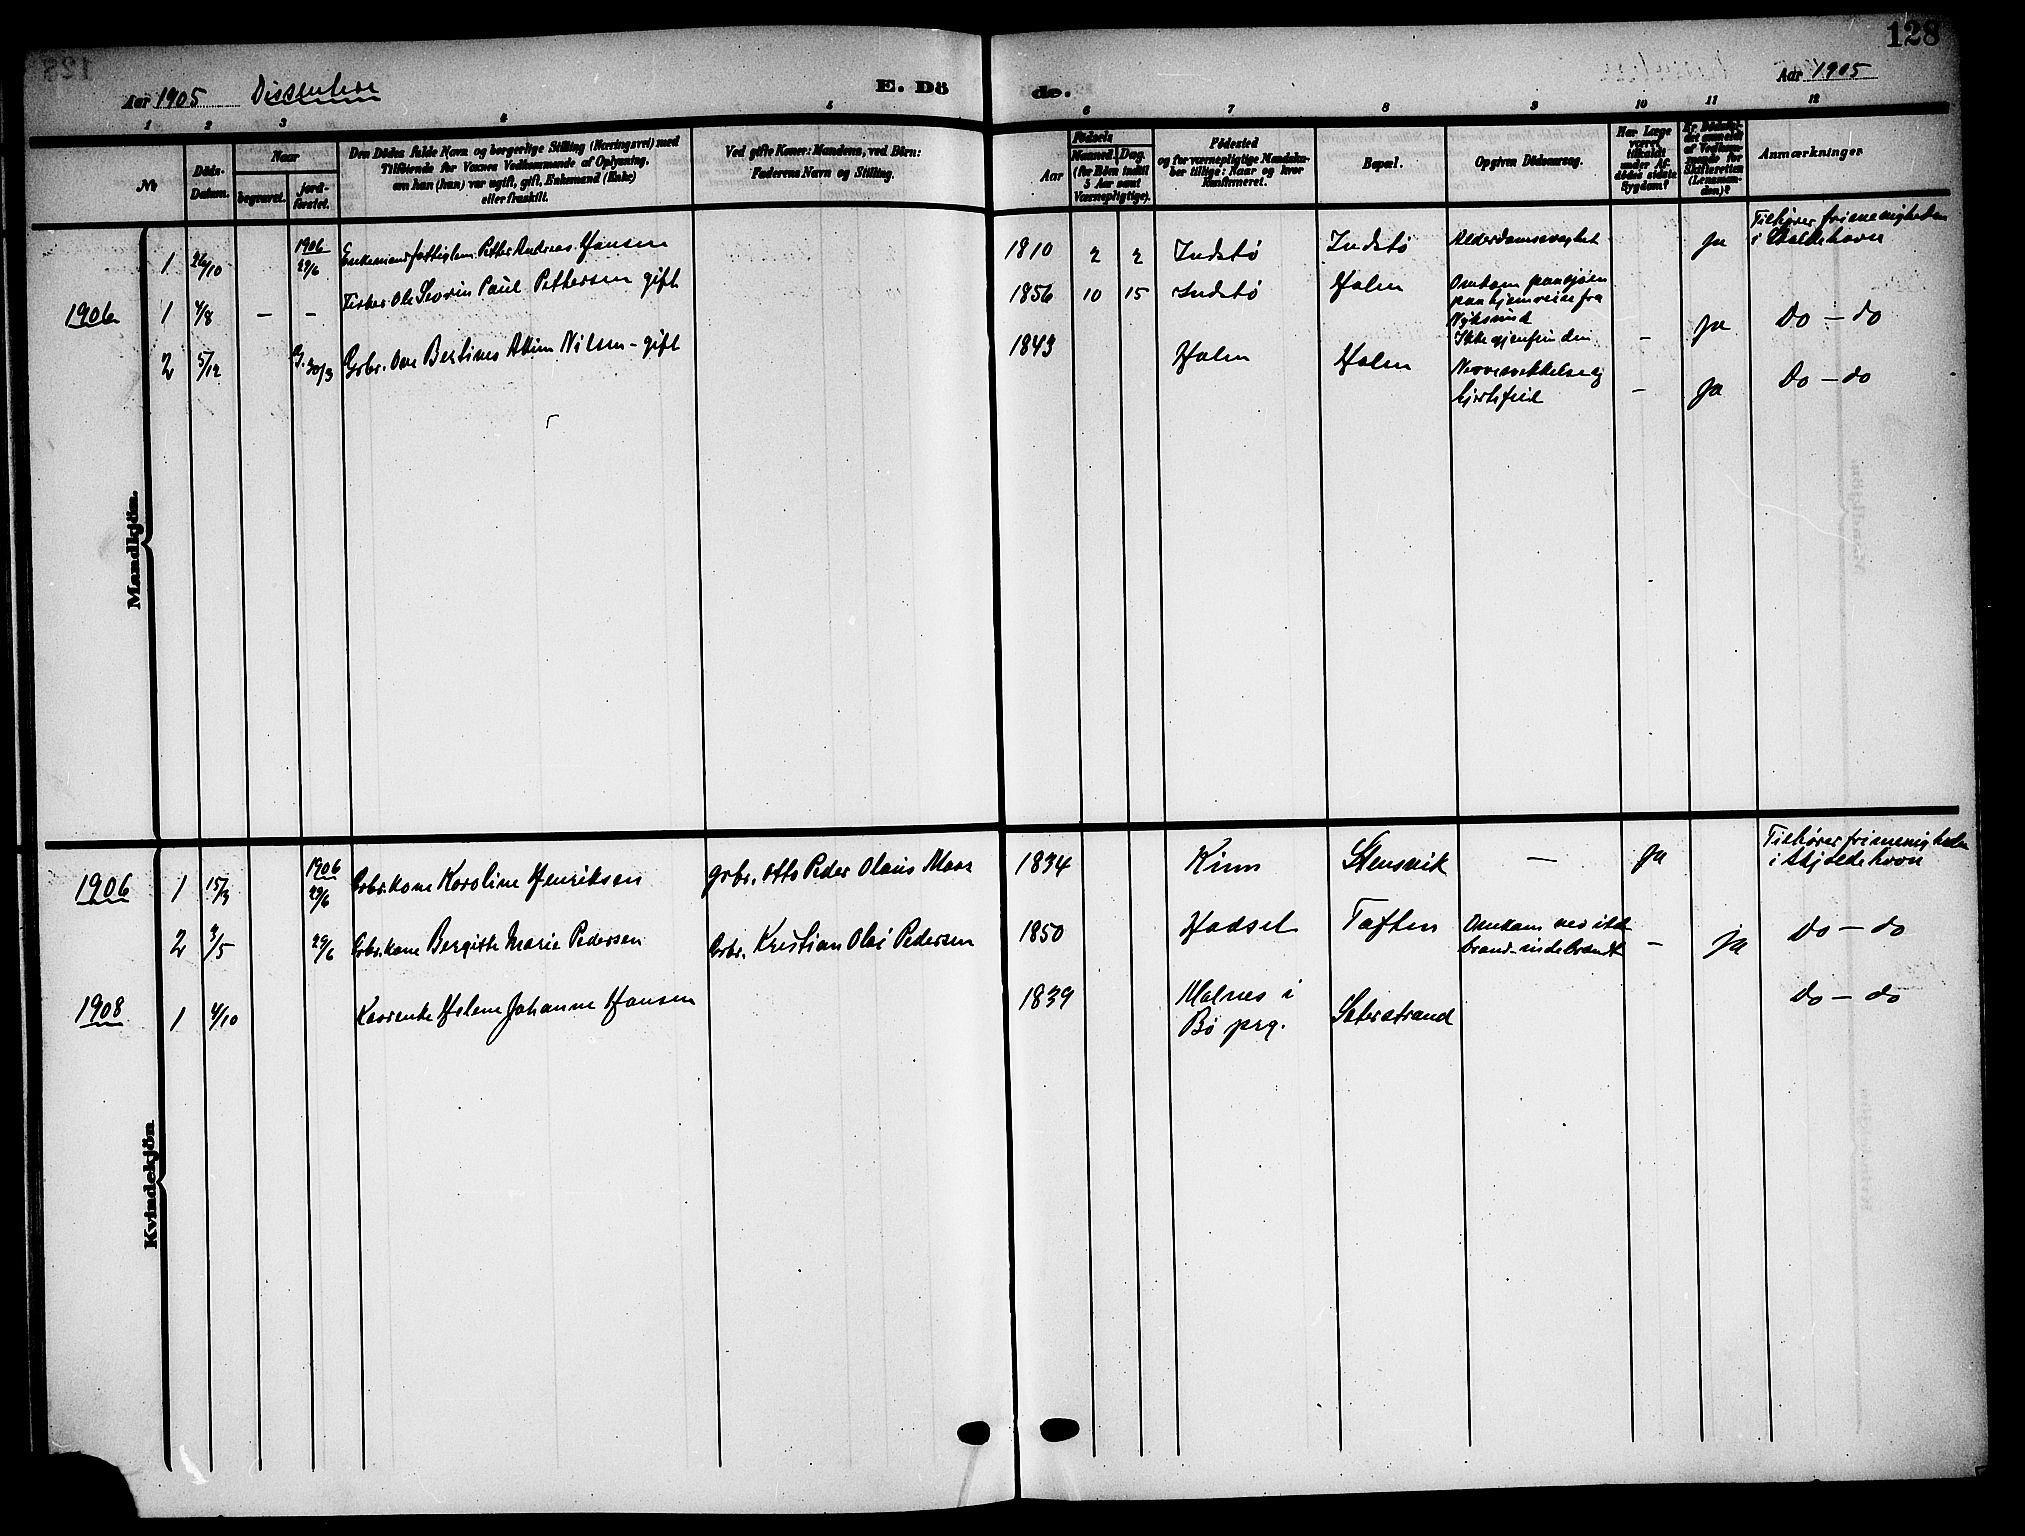 128
Aar 1905 Dissentere E. Dö de. Aar 1905
1 2 3 4 5 6 7 8 9 10 11 12
№
Döds-
Datum.
Naar
begravet.
jord-
fæstet.
Den Dödes fulde Navn og borgerlige Stilling (Næringsvei) med
Tilföiende for Voxnes Vedkommende af Oplysning,
om han (hun) var ugift, gift, Enkemand (Enke)
eller fraskilt.
Ved gifte Koner: Mandens, ved Börn:
Faderens Navn og Stilling.
Födsels
Aar
Maaned. Dag.
(for Börn indtil
5 Aar samt
Værnepligtige).
Födested
og for værnepligtige Mandskaber
tillige: Naar og hvor
Konfirmeret.
Bopæl.
Opgiven Dödsaarsag.
Har Læge
været
tilkaldt
under Af-
dödes sidste
Sygdom?
Er Dödsfal-
det anmeldt
af Vedkom-
mende for
Skifteretten
(Lensman-
den)?
Anmærkninger
Mandkjön.
1 26/10 1906 29/6 Enkemand fattiglem Petter Andreas Hansen 1810 2 2 Indstø Indstø Alderdomssvaghet ja Tilhører frimenigheden
i Skoldehavn
1906 1 4/8 — — Fisker Ole Sevrin Paul Pettersen gift 1856 10 15 Indstø Holm Omkom paa sjøen
paa hjemreise fra
Nyksund
Ikke gjenfunden — ja Do — do
2 5/12 G. 30/3 Grbr. Ove Berlines Akim Nilsen – gift 1843 Holm Holm Nervesvekkelse og
hjertefeil — ja Do — do
Kvindekjön.
1906 1 15/3 1906 29/6 Grbr.kone Karoline Henriksen Grbr. Otto Peder Olaus Moe 1834 Kinn Stensvik — ja Tilhører frimenigheden
i Skjoldehavn
2 3/5 29/6 Grbr.kone Bergitte Marie Pedersen Grbr. Kristian Olai Pedersen 1850 Hadsel Toften Omkom ved ild-
brand-indebrændt — ja do — do
1908 1 4/10 Helene Johanne Hansen 1839 Malnes i
Bø prg. Seterstrand do — do